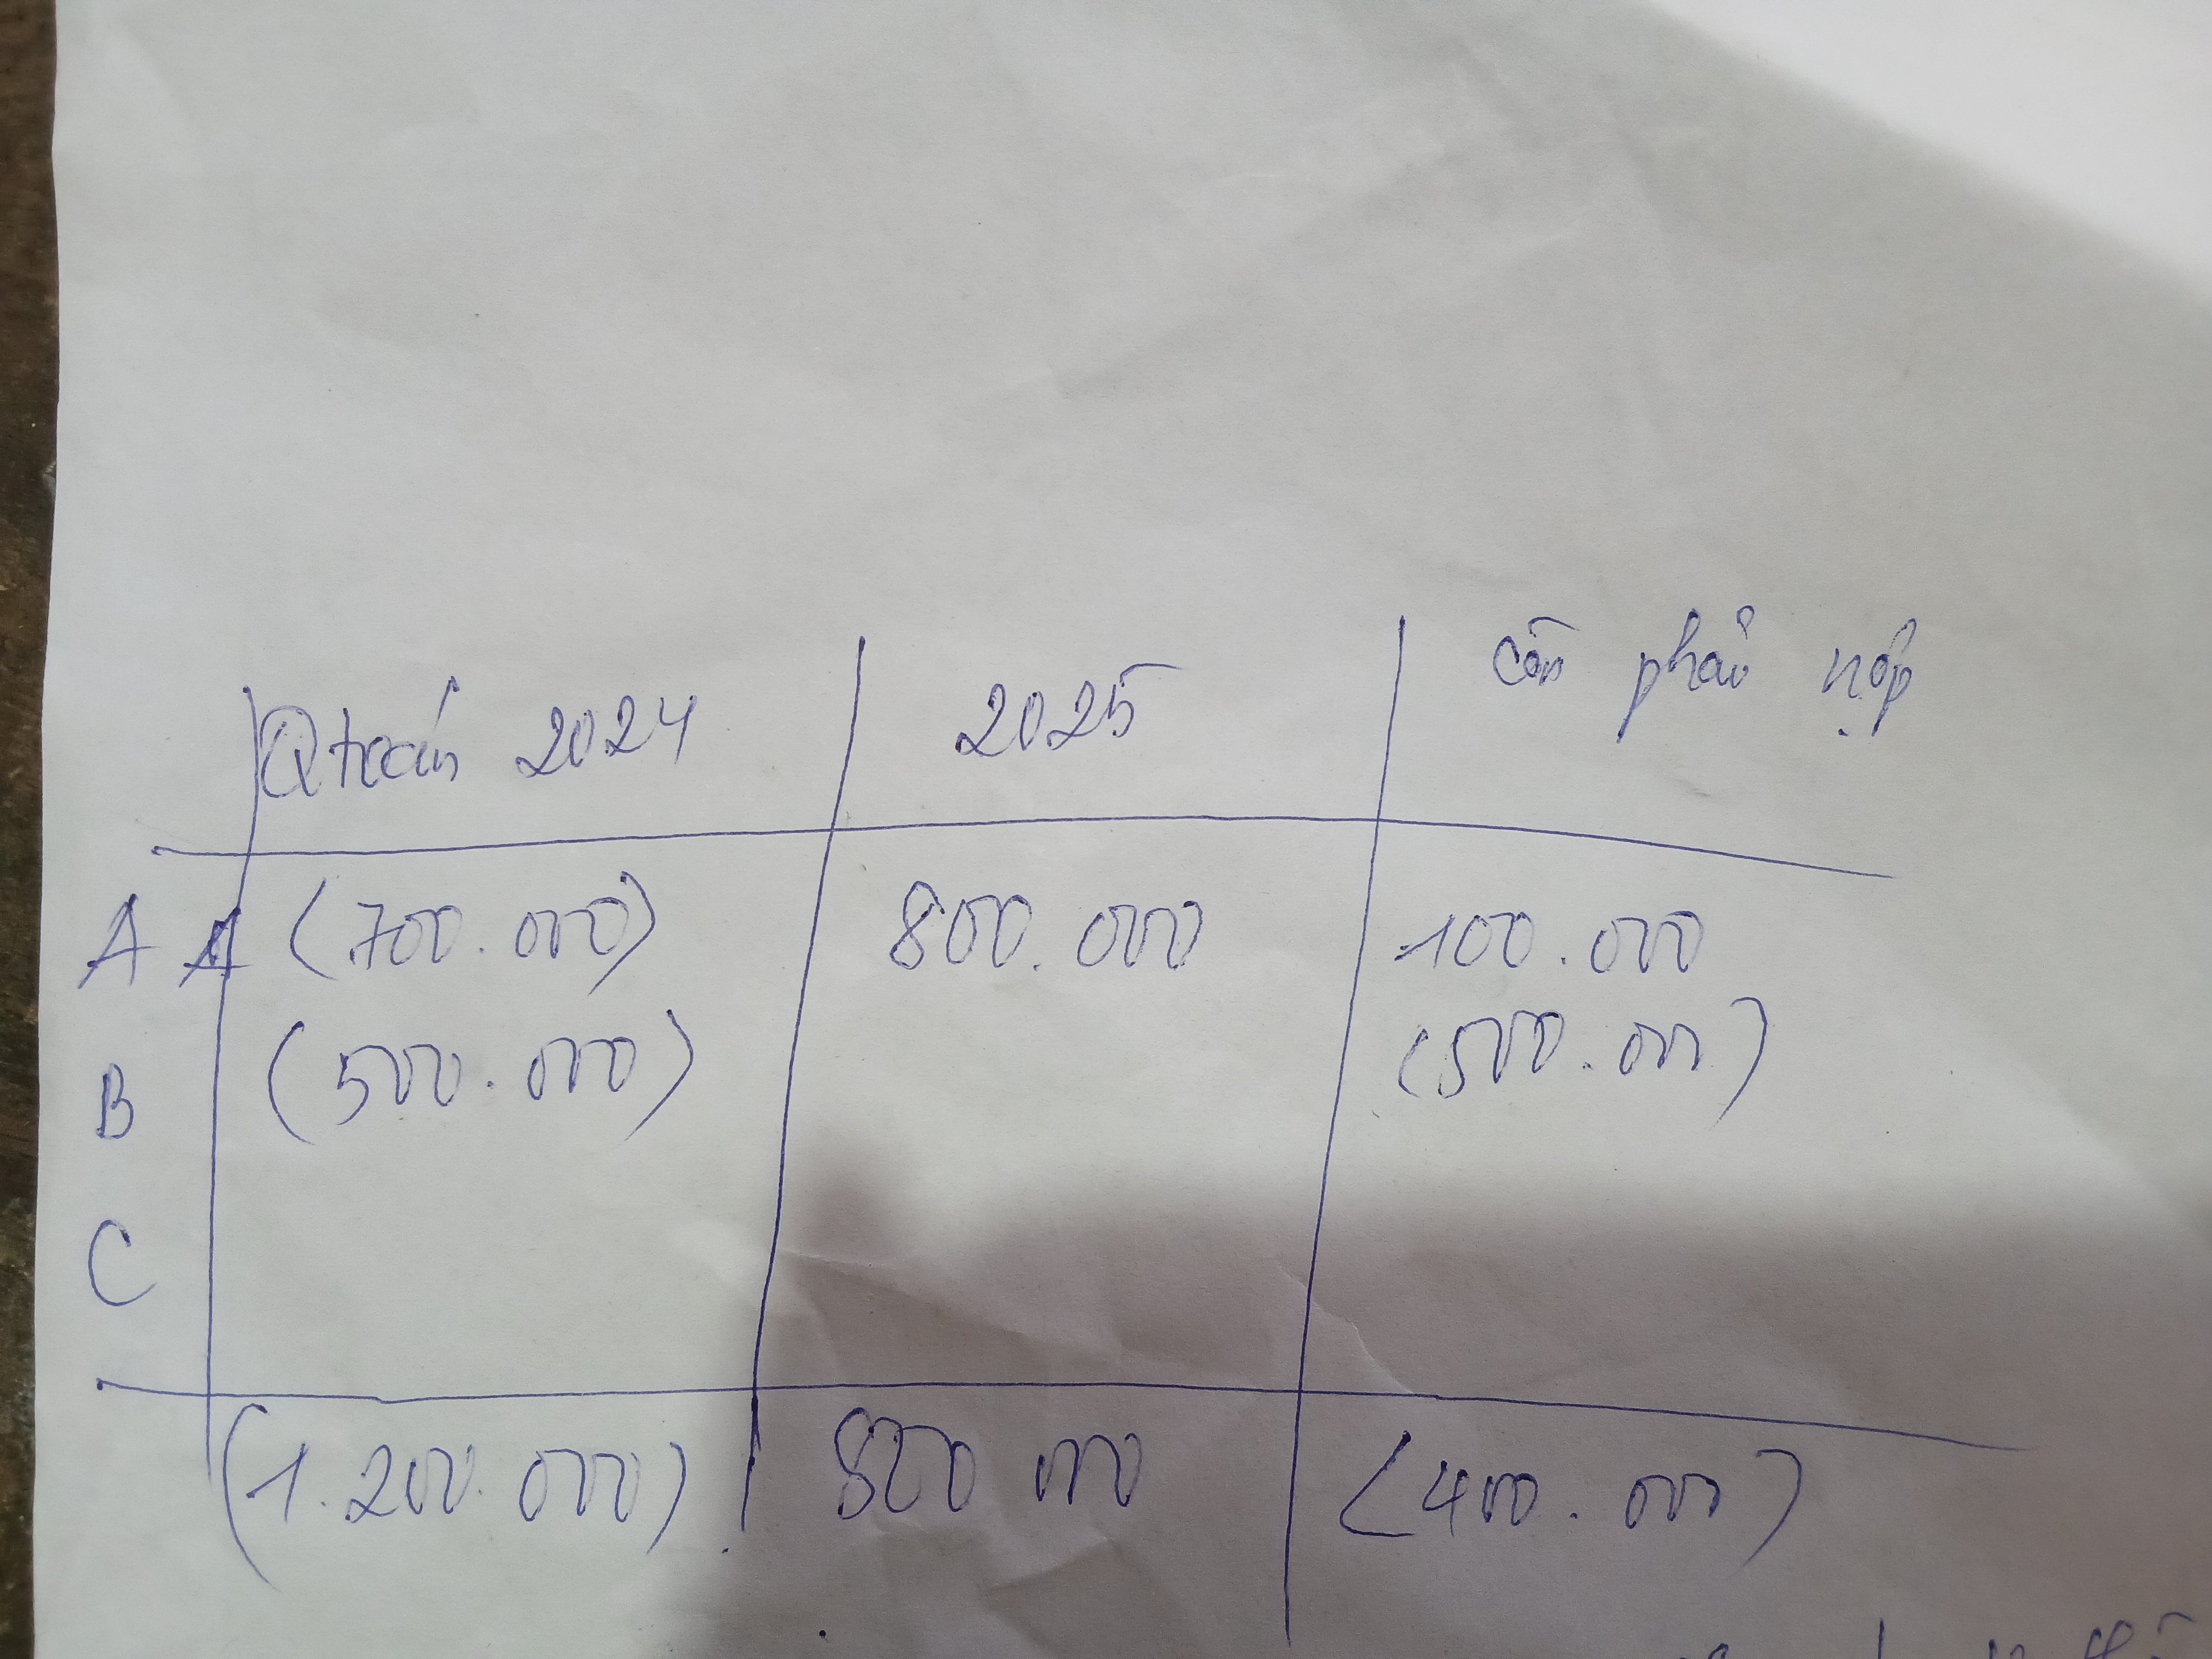 Qtoán 2024 2025 còn phải nộp
A A (700.000) 800.000 100.000
B (500.000) (500.000)
C
(1.200.000) 800 000 (400.000)